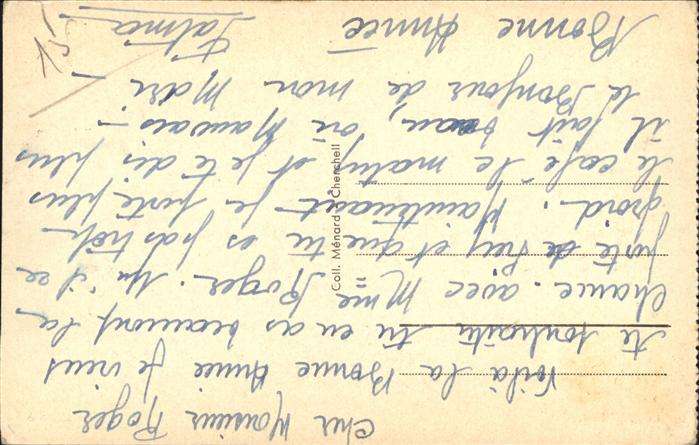 Cher Monsieur Roger
Voilà la Bonne Année je viens
te souhaité tu en as beaucoup la
chance. avec Mme Roger. Un
porté de et que tu es pas trop
froid. Maintenant je porté plus
le café le matin et je te dis plus
il fait beau, ou Mauvais –
le Bonjour de mon Mari –
Bonne Année
Fatma
15
Coll. Ménard - Cherchell